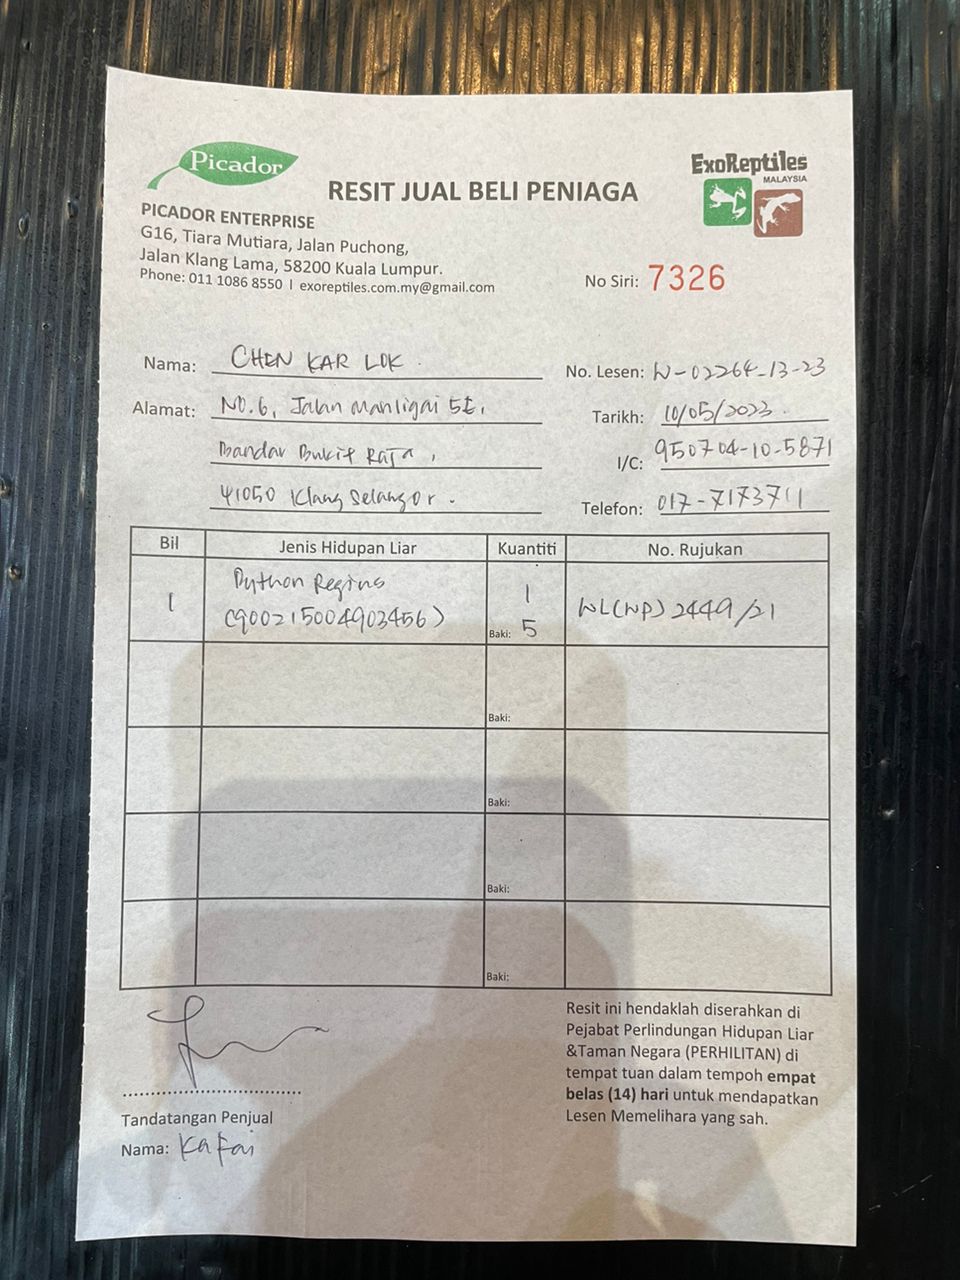 Picador
ExoReptiles
MALAYSIA
RESIT JUAL BELI PENIAGA
PICADOR ENTERPRISE
G16, Tiara Mutiara, Jalan Puchong,
Jalan Klang Lama, 58200 Kuala Lumpur.
Phone: 011 1086 8550 I exoreptiles.com.my@gmail.com
No Siri: 7326
Nama: CHEN KAR LOK.
No. Lesen: W-02264-13-23
Alamat: NO.6, Jalan Manligai 5E,
Tarikh: 10/05/2023.
Bandar Bukit Raja,
I/C: 950704-10-5871
41050 Klang Selangor.
Telefon: 017-7173711
Bil Jenis Hidupan Liar Kuantiti No. Rujukan
1 Python Regius 1
(900215004903456) WL(WP) 2449/21
Baki: 5
Baki:
Baki:
Baki:
Baki:
Resit ini hendaklah diserahkan di
Pejabat Perlindungan Hidupan Liar
&Taman Negara (PERHILITAN) di
tempat tuan dalam tempoh empat
belas (14) hari untuk mendapatkan
Lesen Memelihara yang sah.
Tandatangan Penjual
Nama: Kafai